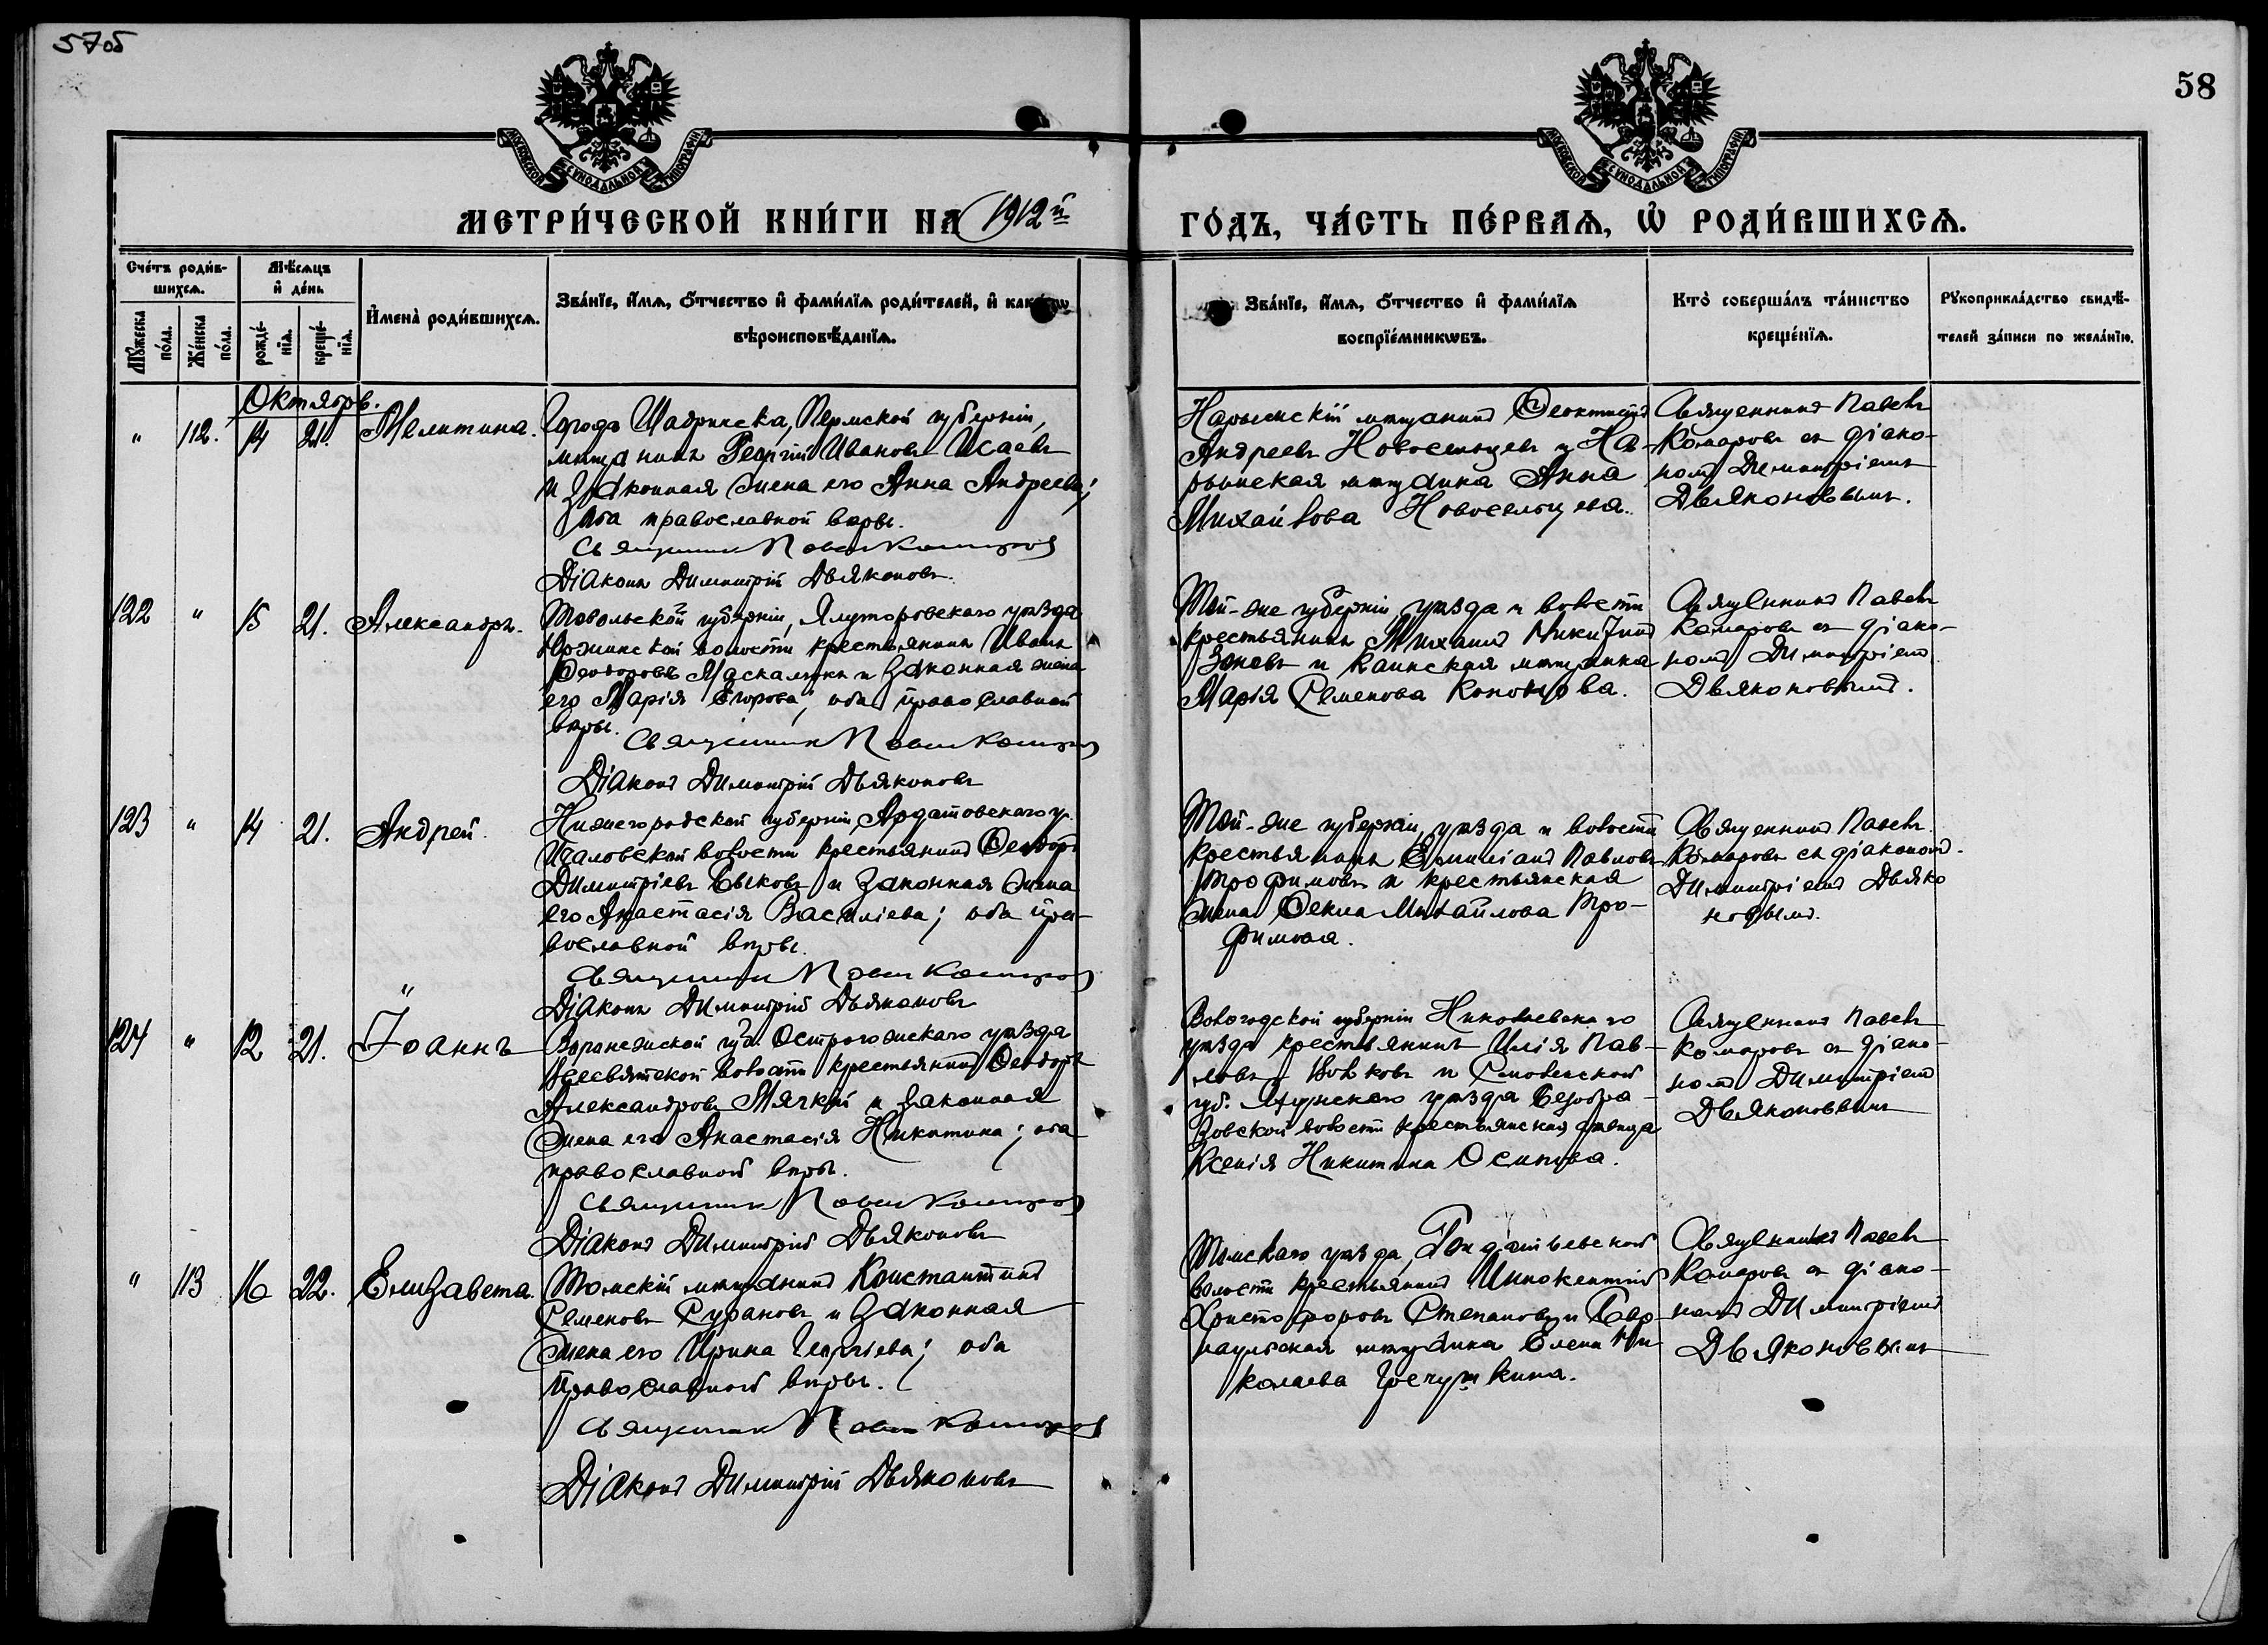 57об
58
МОСКОВСКОЙ СѴНОДАЛЬНОЙ ТИПОГРАФІИ
МОСКОВСКОЙ СѴНОДАЛЬНОЙ ТИПОГРАФІИ
МЕТРИ́ЧЕСКОЙ КНИ́ГИ НА 1912й
ГО́ДЪ, ЧА́СТЬ ПЕ́РВАѦ, Ѡ҆ РОДИ́ВШИХСѦ.
Сче́тъ роди́в-
шихсѧ.
Мѣ́сѧцъ
и҆ де́нь
Мꙋ́жеска по́ла.
Же́нска по́ла.
рожде́-
нїѧ.
креще́-
нїѧ.
И҆мена̀ роди́вшихсѧ.
Зва́нїе, и҆́мѧ, ѻ҆́тчество и҆ фами́лїѧ роди́телей, и҆
вѣроисповѣ́данїѧ.
Зва́нїе, и҆́мѧ, ѻ҆́тчество и҆ фами́лїѧ
воспрїе́мникѡвъ.
Кто̀ соверша́лъ та́инство
креще́нїѧ.
Рꙋкоприкла́дство свидѣ́-
телей за́писи по жела́нїю.
Октябрь.
" 112. 14 21. Мелитина.
Города Шадринска, Пермской губерніи,
мѣщанинъ Георгій Ивановъ Исаевъ
и законная жена его Анна Андреева;
оба православной вѣры.
Священникъ Павелъ Комаровъ
Діаконъ Димитрій Дьяконовъ.
Нарымскій мѣщанинъ Ѳеоктистъ
Андреевъ Новосельцевъ и На-
рымская мѣщанка Анна
Михайлова Новосельцева.
Священникъ Павелъ
Комаровъ съ діако-
номъ Димитріемъ
Дьяконовымъ.
122 " 15 21. Александръ.
Тобольской губерніи, Ялуторовскаго уѣзда
волости крестьянинъ Иванъ
Ѳеодоровъ Маскалюкъ и законная жена
его Марія Егорова; оба православной
вѣры.
Священникъ Павелъ Комаровъ
Діаконъ Димитрій Дьяконовъ
Той-же губерніи, уѣзда и волости
крестьянинъ Михаилъ Никитинъ
Зоневъ и Каинская мѣщанка
Марія Семенова Кононова.
Священникъ Павелъ
Комаровъ съ діако-
номъ Димитріемъ
Дьяконовымъ.
123 " 14 21. Андрей.
Нижегородской губерніи, Ардатовскаго у.
Ичаловской волости крестьянинъ Ѳеодоръ
Димитріевъ Быковъ и законная жена
его Анастасія Васильева; оба пра-
вославной вѣры.
Священникъ Павелъ Комаровъ
Діаконъ Димитрій Дьяконовъ
Той-же губерніи, уѣзда и волости
крестьянинъ Емиліанъ Павловъ
Трофимовъ и крестьянская
жена Ѳекла Михайлова Тро-
фимова.
Священникъ Павелъ
Комаровъ съ діакономъ
Димитріемъ Дьяко
новымъ.
124 " 12 21. Іоаннъ
Воронежской губ. Острогожскаго уѣзда
Всесвятской волости крестьянинъ Ѳеодоръ
Александровъ Мячкій и законная
жена его Анастасія Никитина; оба
православной вѣры.
Священникъ Павелъ Комаровъ
Діаконъ Димитрій Дьяконовъ
Вологодской губерніи Никольскаго
уѣзда крестьянинъ Илія Пав-
ловъ Волковъ и Смоленской
губ. уѣзда Безобра-
зовской волости крестьянская дѣвица
Ксенія Никитина Осипова.
Священникъ Павелъ
Комаровъ съ діако-
номъ Димитріемъ
Дьяконовымъ
" 113 16 22. Елизавета.
Томскій мѣщанинъ Константинъ
Семеновъ Сурановъ и законная
жена его Ирина Георгіева; оба
православной вѣры.
Священникъ Павелъ Комаровъ
Діаконъ Димитрій Дьяконовъ
Томскаго уѣзда,
волости крестьянинъ Иннокентій
Христофоровъ Степановъ и Бар-
наульская мѣщанка Елена Ни-
колаева Гречушкина.
Священникъ Павелъ
Комаровъ съ діако-
номъ Димитріемъ
Дьяконовымъ